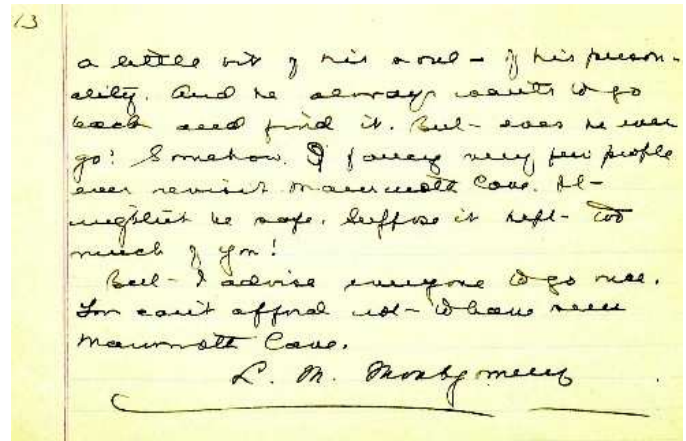 13
a little bit of his soul – of his person-
ality. And he always wants to go
back and find it. But – does he ever
go? Somehow, I fancy very few people
ever revisit Mammoth Cave. It
mightn't be safe. Suppose it kept too
much of you!
But – I advise everyone to go once.
You can't afford not to have seen
Mammoth Cave.
L. M. Montgomery